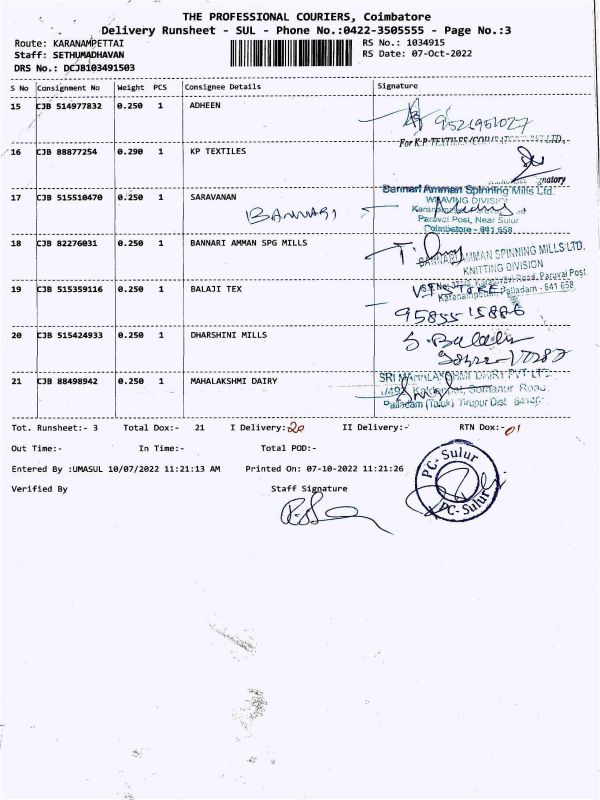 THE PROFESSIONAL COURIERS, Coimbatore
Delivery Runsheet - SUL - Phone No.:0422-3505555 - Page No.:3
Route: KARANAMPETTAI
RS No.: 1034915
Staff: SETHUMADHAVAN
RS Date: 07-Oct-2022
DRS No.: DCJB103491503
S No Consignment No Weight PCS Consignee Details Signature
15 CJB 514977832 0.250 1 ADHEEN
9521951027
16 CJB 88877254 0.290 1 KP TEXTILES
For K.P. TEXTILES
17 CJB 515510470 0.250 1 SARAVANAN
BANNARI
Bannari Amman Spinning Mills Ltd.
WEAVING DIVISION
Paravai Post, Near Sulur
Coimbatore - 641 658
18 CJB 82276031 0.250 1 BANNARI AMMAN SPG MILLS
BANNARI AMMAN SPINNING MILLS LTD.
KNITTING DIVISION
Karanampettai, Palladam - 641 658
19 CJB 515359116 0.250 1 BALAJI TEX
20 CJB 515424933 0.250 1 DHARSHINI MILLS
21 CJB 88498942 0.250 1 MAHALAKSHMI DAIRY
SRI MAHALAKSHMI DAIRY PVT LTD
Palladam (Taluk) Tirupur Dist
Tot. Runsheet:- 3 Total Dox:- 21 I Delivery:-20 II Delivery:- RTN Dox:-01
Out Time:- In Time:- Total POD:-
Entered By :UMASUL 10/07/2022 11:21:13 AM Printed On: 07-10-2022 11:21:26
Verified By Staff Signature
PC-Sulur
PC-Sulur